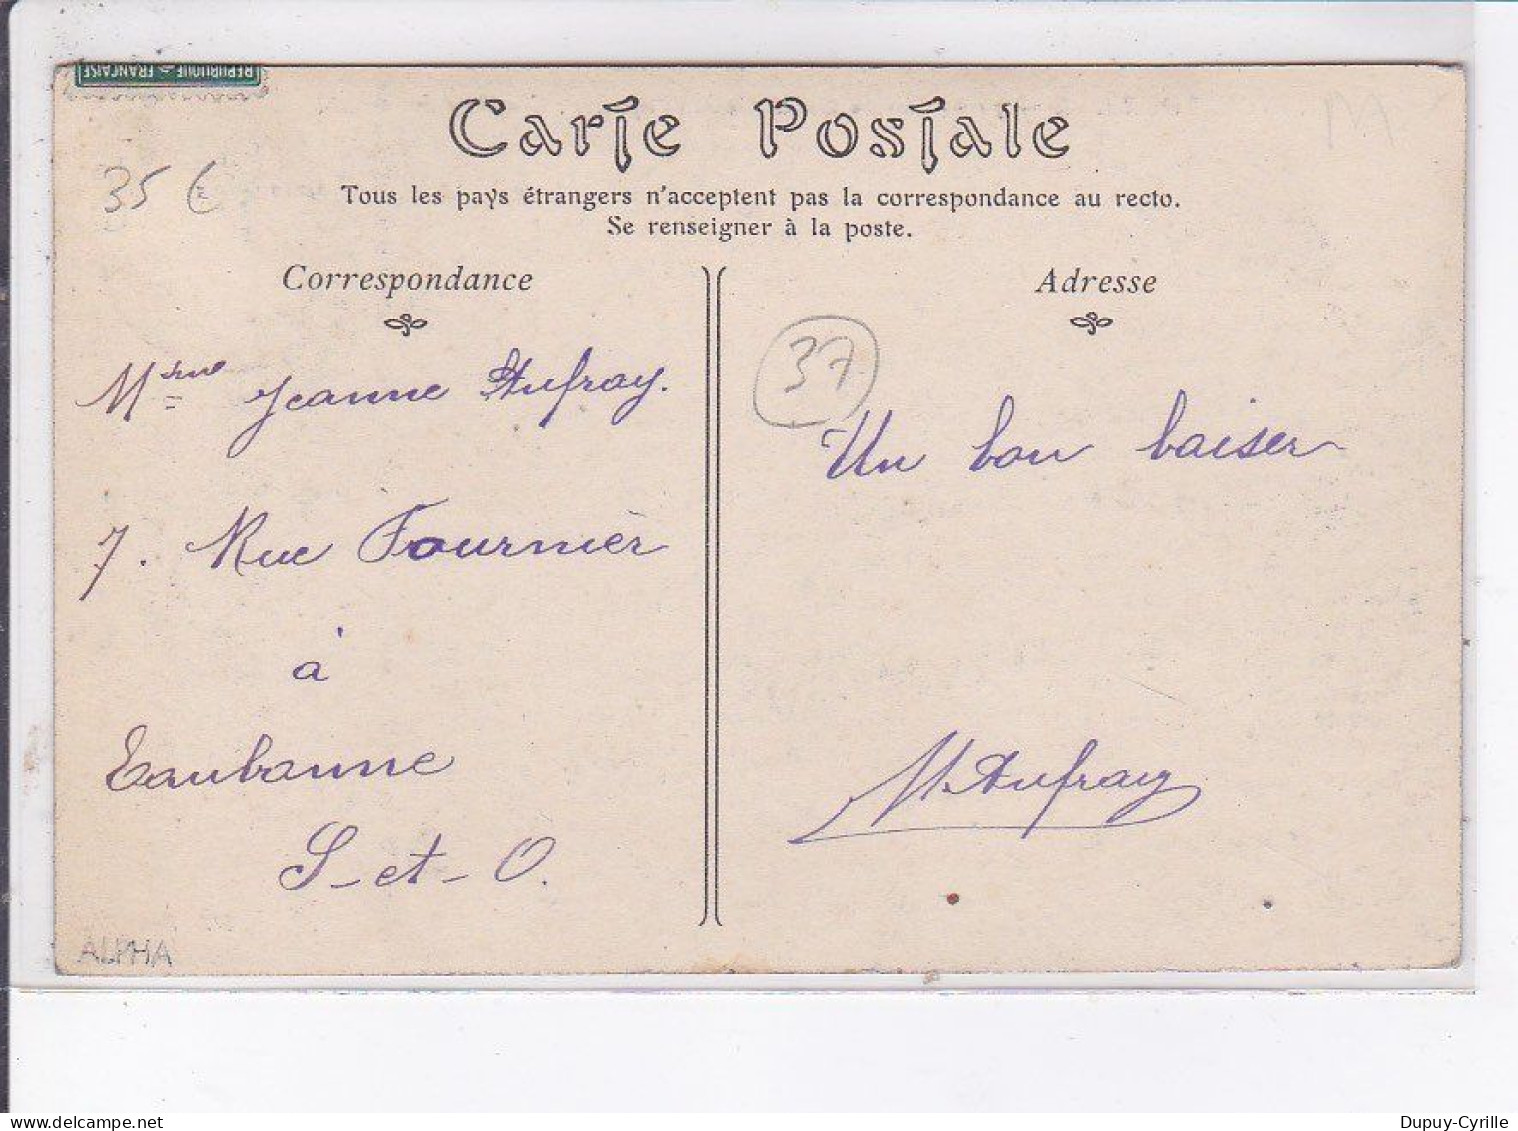 RÉPUBLIQUE FRANÇAISE
Carte Postale
35 €
M
Tous les pays étrangers n'acceptent pas la correspondance au recto.
Se renseigner à la poste.
Correspondance
Adresse
37
Mme Jeanne Aufray.
7. Rue Fournier
à
Eaubonne
S-et-O.
Un bon baiser
M. Aufray
ALPHA
Dupuy-Cyrille